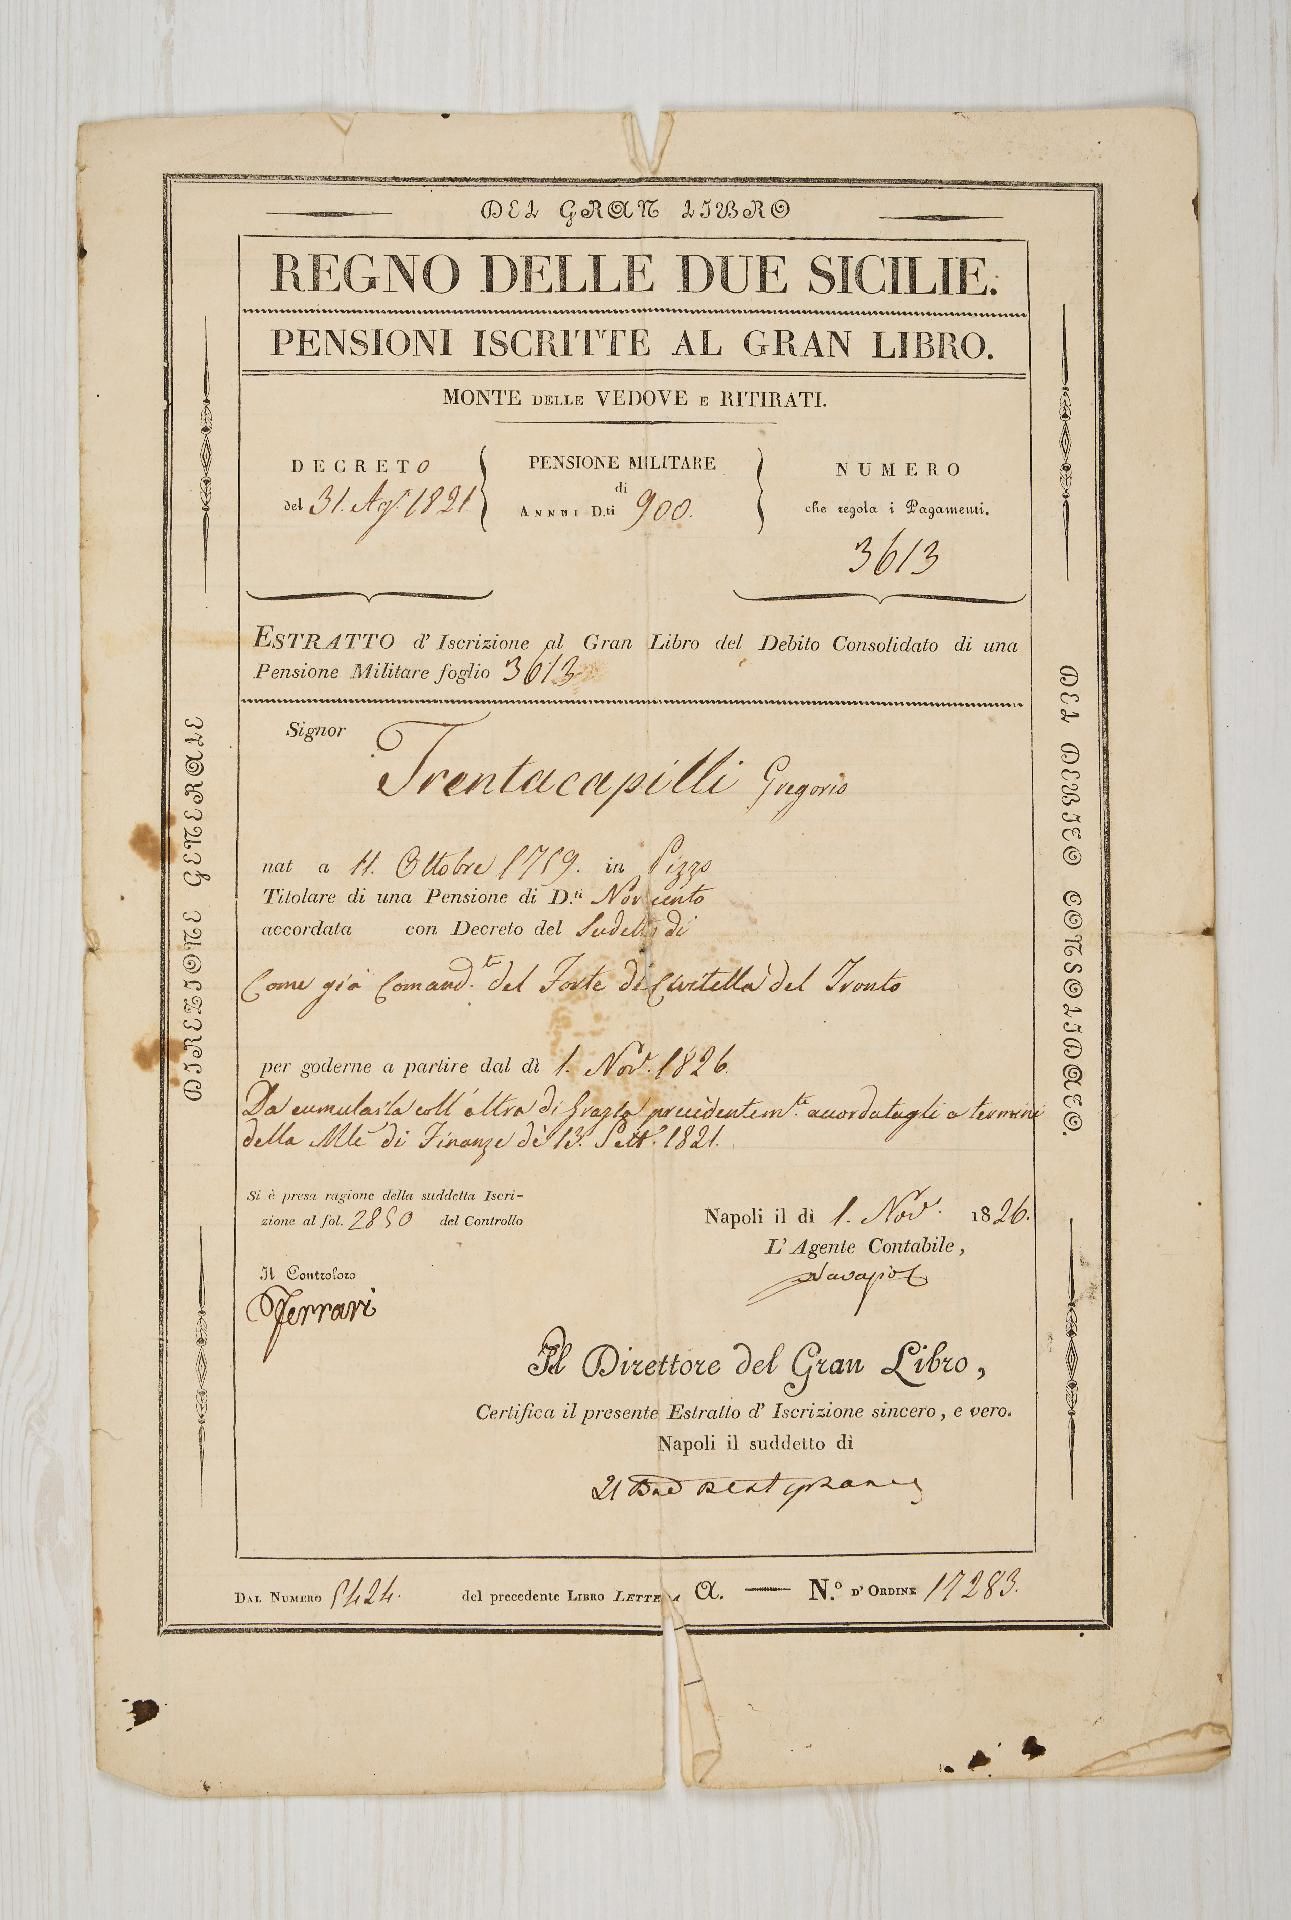 DEL GRAN LIBRO
REGNO DELLE DUE SICILIE.
PENSIONI ISCRITTE AL GRAN LIBRO.
MONTE DELLE VEDOVE E RITIRATI.
DECRETO
del 31. Ag.º 1821
PENSIONE MILITARE
di
ANNUI D.ti 900.
NUMERO
che regola i Pagamenti.
3613
ESTRATTO d' Iscrizione al Gran Libro del Debito Consolidato di una
Pensione Militare foglio 3613
Signor
Trentacapilli Gregorio
nat a 11. Ottobre 1759. in Pizzo
Titolare di una Pensione di D.ti Novecento
accordata con Decreto del Sudetto dì
Come già Comand.te del Forte di Civitella del Tronto
per goderne a partire dal dì 1. Nov.e 1826.
Da cumularla coll' altra di Grazia precedentem.te accordatagli a termini
della Mle di Finanze de' 13. Sett.e 1821.
Si è presa ragione della suddetta Iscri-
zione al fol. 2850 del Controllo
Napoli il dì 1. Nov.e 1826.
L' Agente Contabile,
Il Controloro
Ferrari
Il Direttore del Gran Libro,
Certifica il presente Estratto d' Iscrizione sincero, e vero.
Napoli il suddetto dì
DAL NUMERO 5424. del precedente LIBRO LETTERA A. — N.º D' ORDINE 17283.
DIREZIONE GENERALE
DEL DEBITO CONSOLIDATO.